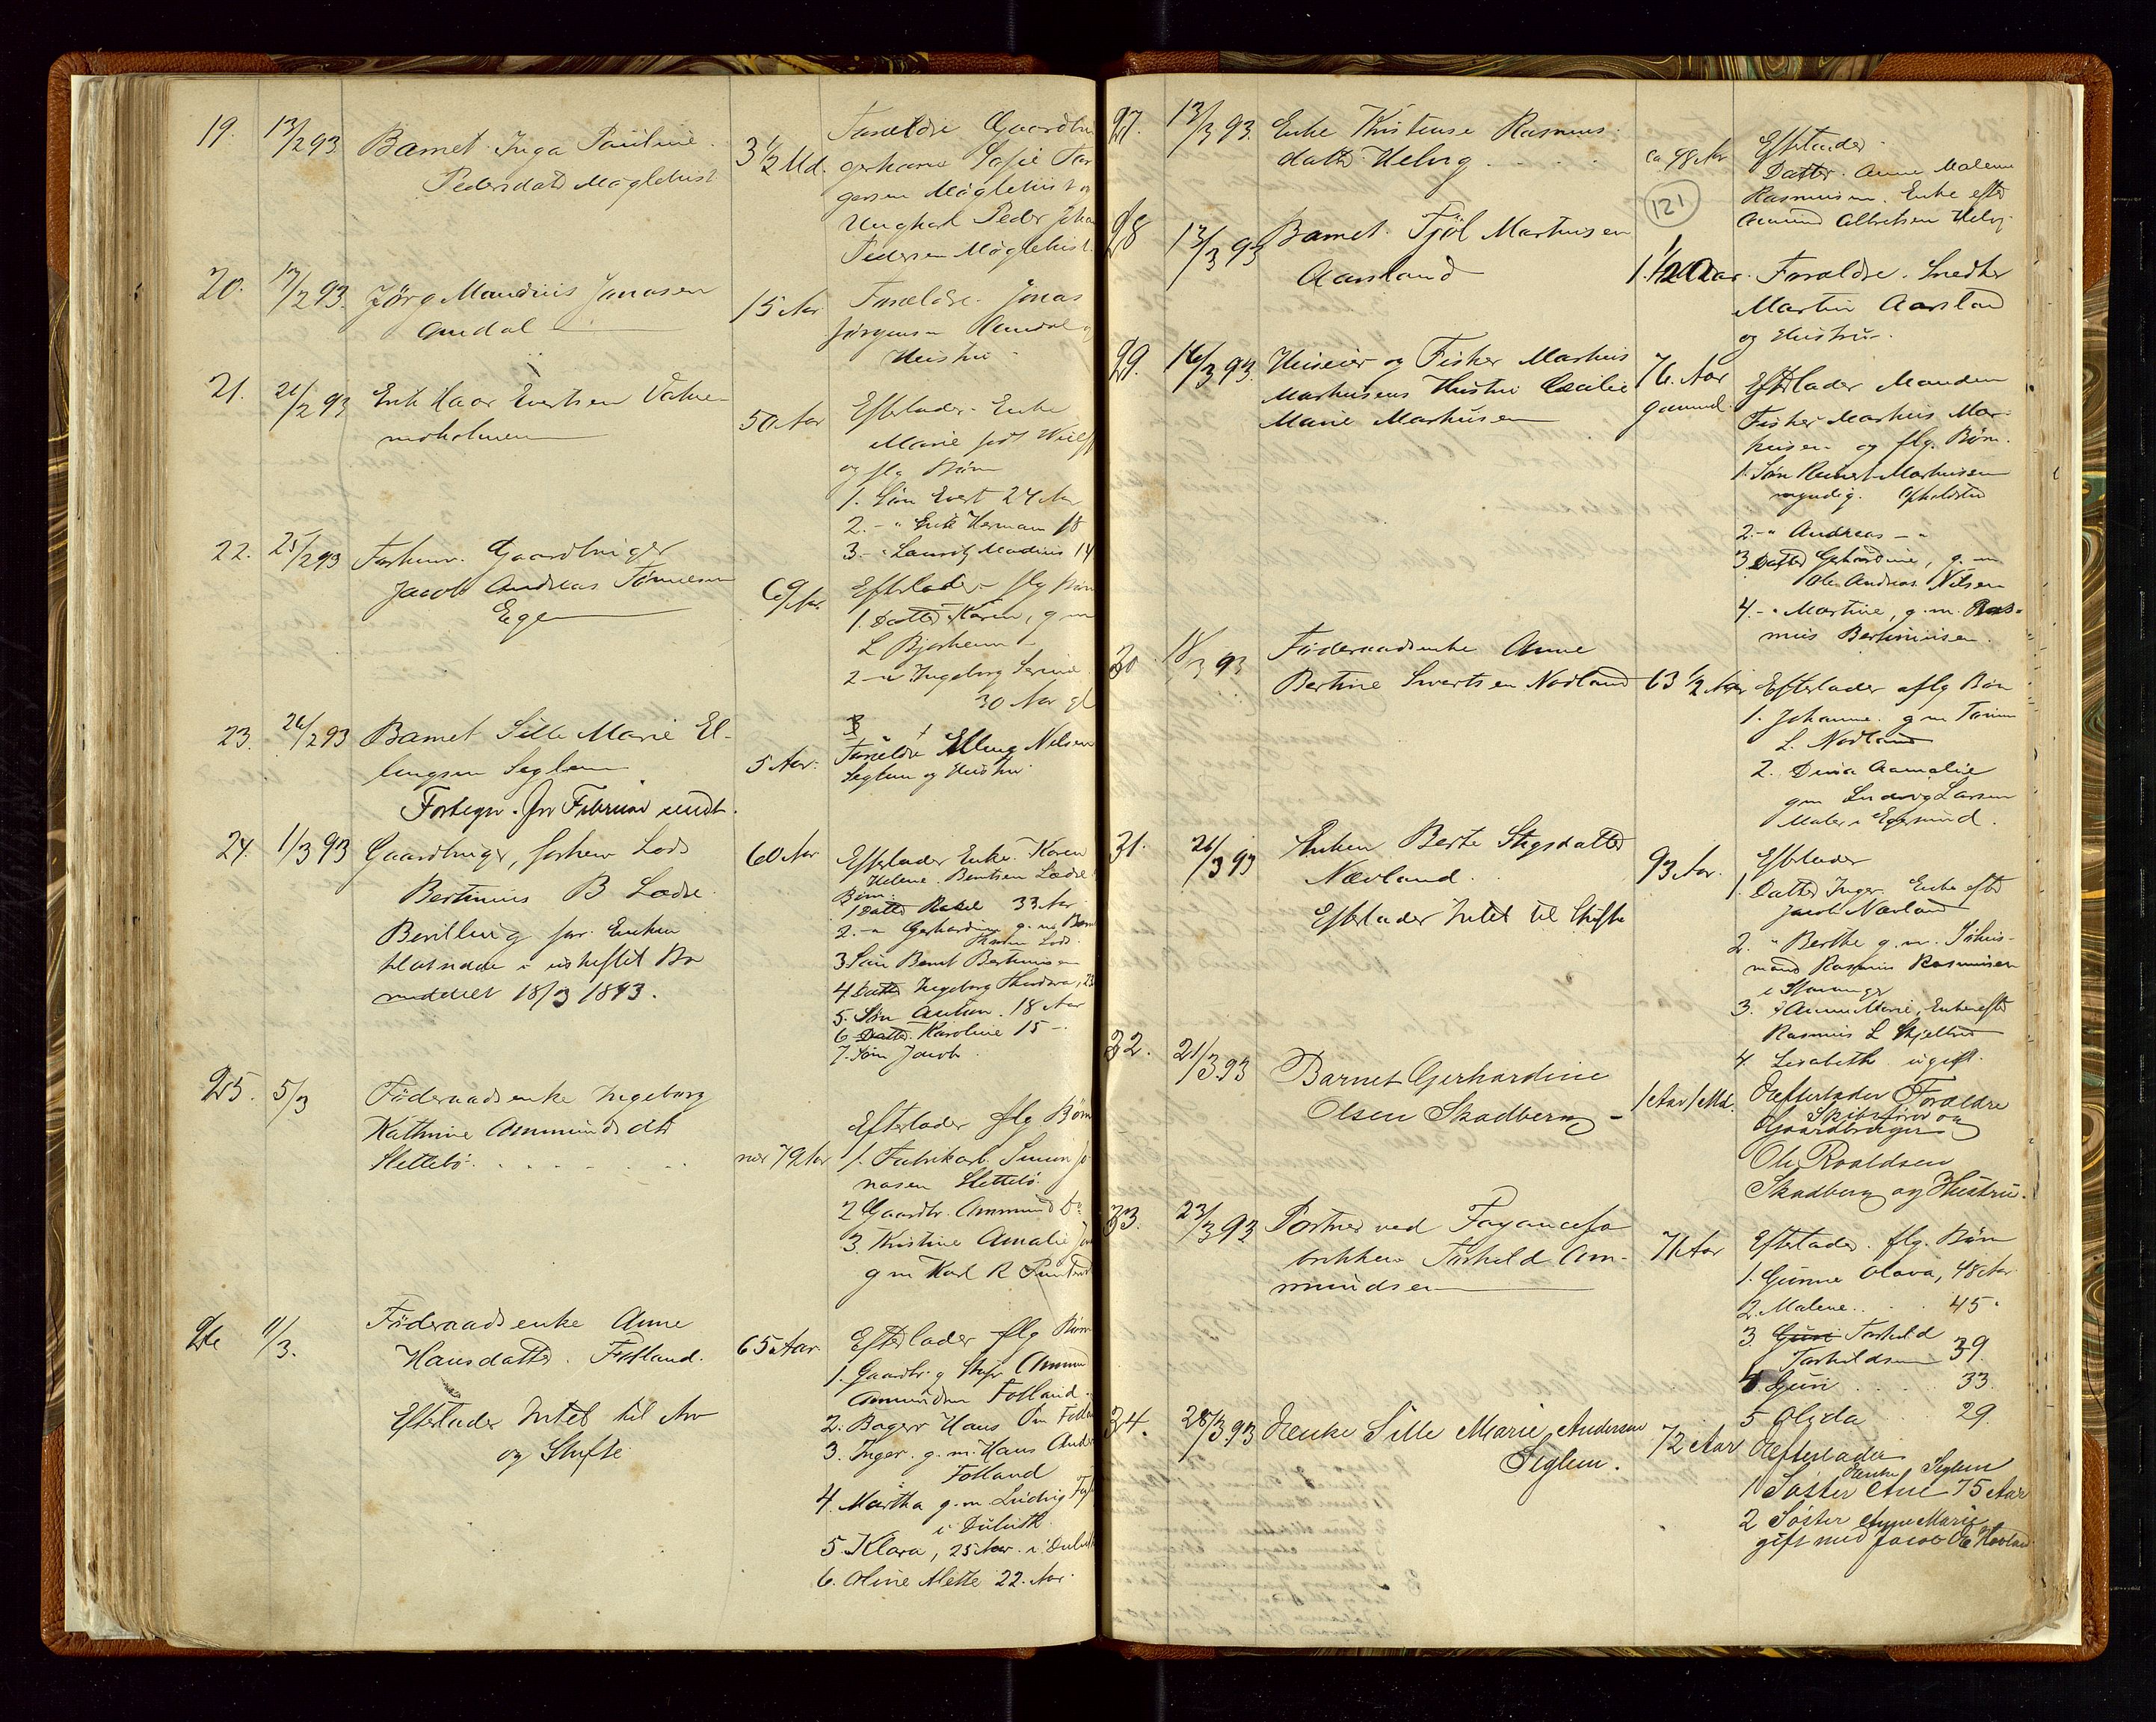 19. 13/2 93 Barnet Inga Pauline
Pedersdatr Møglehist
3 1/2 Md.
Forældre Gaardbru
gerkone Sofie Tor
gersen Møglehist og
Ungkarl Peder Johan
Pedersen Møglehist
20. 17/2 93. Jørg Maurinius Jonasen
Omdal
15 Aar
Forældre Jonas
Jørgensen Omdal og
Hustru
21. 21/2 93 Erik Haar Evertsen Vatne
mdholmen
50 Aar
Efterlader Enke
Marie født
og flg Børn
1. Søn Evert 24 Aar
2. - " Erik Herman 18
3. - " Lauritz Martinius 14
22. 25/2 93 Forhenv. Gaardbruger
Jacob Andreas Tønnesen
Ege
69 Aar.
Efterlader flg Børn
1. Datter Karen, g m
L Bjerheim
2 - " Ingeborg Serine
30 Aar gl
23. 26/2 93 Barnet Sille Marie El-
lingsen Seglem
5 Aar.
Forældre Elling Nilsen
Seglem og Hustru
Fortegn. for Februar sendt.
24. 1/3 93 Gaardbruger, forhenv Lods
Bertinius B Lædre
60 Aar
Efterlader Enke Karen
Helene Bentsen Lædre
Børn
1 Datter Rakel 33 Aar
2. - " Gerhardine g. m.
3 Søn Bernt Bertinusen
4. Datter Ingeborg Theodora, 23
5. Søn Anton. 18 Aar
6 Datter Karoline 15 -
7. Søn Jacob
Bevilling for Enken
til at sidde i uskiftet Bo
meddelt 18/3 1893.
25. 5/3 Føderaadsenke Ingeborg
Kathrine Ommundsdtr
Slettebø
nær 79 Aar
Efterlader flg Børn
1. Fabrikarb. Simon Jo
nasen Slettebø
2 Gaardbr. Ommund Do
3. Kristine Amalie
g m Karl R
26 11/3. Føderaadsenke Anne
Hansdatter Fotland.
65 Aar.
Efterlader flg Børn
1. Gaardbr. og Ommund
Ommundsen Fotland
2. Bager Hans Om Fotland
3. Inger. g. m. Hans Ander
Fotland
4. Martha g. m. Ludvig
i Duluth
5. Klara, 25 Aar i Duluth
6. Oline Mette 22. Aar.
Efterlader Intet til Arv
og Skifte
27. 13/3 93. Enke Kristense Rasmus-
datter Helvig
ca 48 Aar
(121)
Efterlader
Datter Anne Malene
Rasmussen. Enke efter
Aanund Albretsen Helvig
28 13/3 93 Barnet Fjöl Markusen
Aarstand
1 1/2 Aar.
Forældre. Snedker
Martin Aarstad
og Hustru.
29. 16/3 93. Huseier og Fisker Markus
Markusens Hustru Cæcilie
Marie Markusen
76. Aar
gammel
Efterlader Manden
Fisker Markus Mar-
kusen og flg. Børn.
1. Søn Reinert Markusen
myndig. Opholdsted
2. - " Andreas - "
3 Datter Gerhardine, g. m
Ole Andreas Nilsen
4 - " Martine, g. m. Ras-
mus Bertiniusen.
30 18/3 93 Føderaadsenke Anne
Bertine Sivertsen Nodland
63 1/2 Aar
Efterlader flg Børn
1. Johanne. g m Tønnes
L. Nodland
2. Dina Aamalie
g m Ludvig Larsen
Maler i Egersund.
31. 21/3 93 Enken Berte Stigsdatter
Nævland.
93 Aar.
Efterlader Intet til Skifte
Efterlader
1. Datter Inger Enke efter
Jacob Nævland
2. " Berthe g. m. Johus-
mand Rasmus Rasmussen
i Stavanger
3. " Anne Marie, Enke efter
Rasmus L Skjelbred
4. Lisabeth ugift.
32. 21/3 93 Barnet Gerhardine
Olsen Skadberg -
1 Aar 1 Md.
Efterlader Forældre
Skibsfører og
Gaardbruger
Ole Roaldsen
Skadberg og Hustru.
33. 23/3 93 Portner ved Fayancefa
brikken Torkild Om-
mundsen
71 Aar
Efterlader. flg. Børn
1. Gunne Olava, 48 Aar.
2. Malene . . . 45 "
3 Guri Torkild
Torkildsen 39.
4 Guri . . . . 33.
5 Olyda 29.
34. 28/3 93 Enke Sille Marie Andersen
Seglem.
72 Aar
Efterlader
Enke Seglem
1 Søster Ane 75 Aar
2 Søster Anne Marie
gift med Jacob Hovland